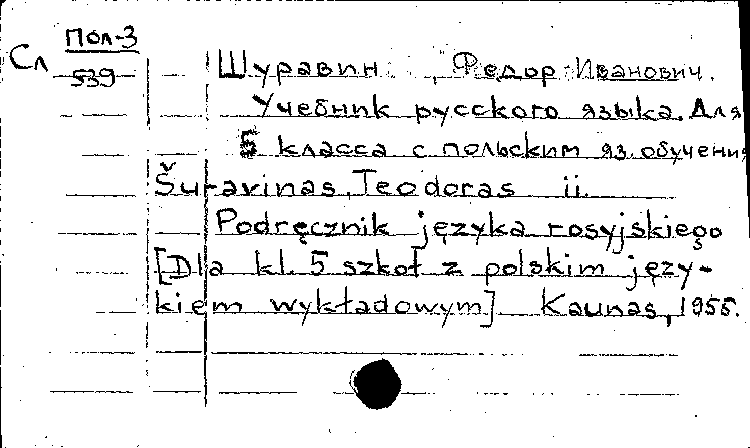 Сл Пол-3
539
Шуравин, Федор Иванович.
Учебник русского языка. Для
5 класса с польским яз. обучения
Šuravinas, Teodoras ii.
Podręcznik języka rosyjskiego
[Dla kl. 5 szkoł z polskim języ-
kiem wykładowym] Kaunas, 1955.